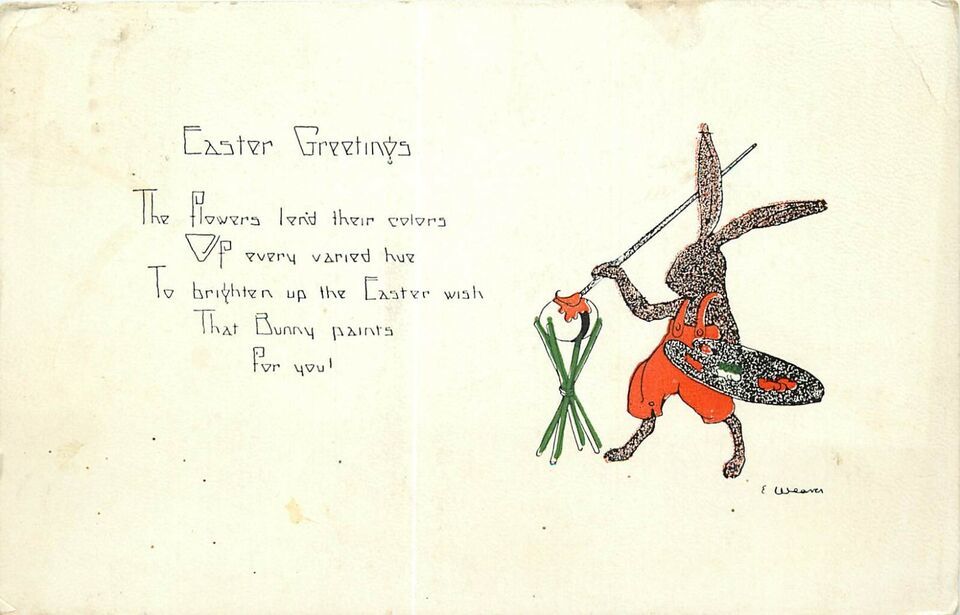 Easter Greetings
The flowers lend their colors
Of every varied hue
To brighten up the Easter wish
That Bunny paints
For you!
E Weaver